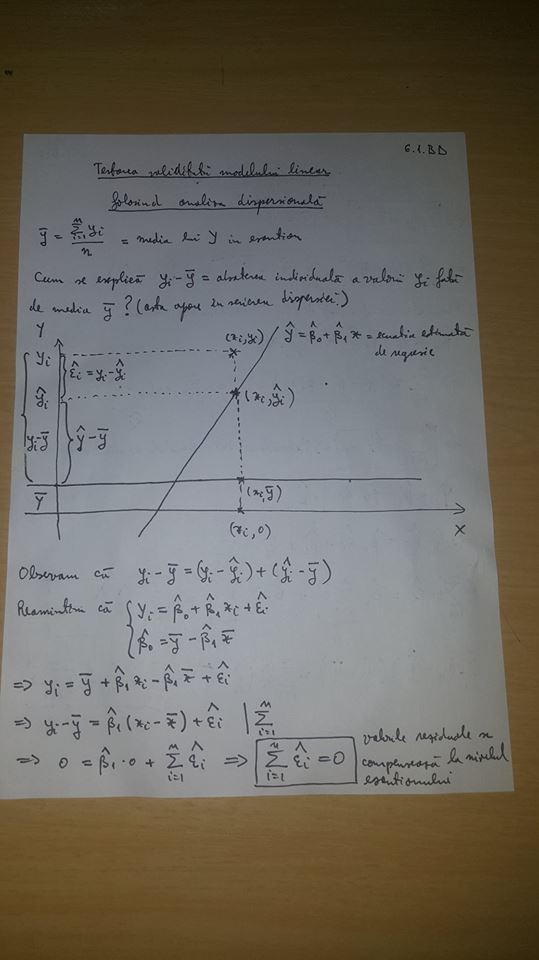 6.1.BD
Testarea validității modelului liniar
folosind analiza dispersională
ȳ = Σ_{i=1}^{n} y_i / n = media lui Y în eșantion
Cum se explică y_i - ȳ = abaterea individuală a valorii y_i față
de media ȳ? (asta apare în scrierea dispersiei.)
Y
(x_i, y_i)
ŷ = β̂_0 + β̂_1 x = ecuația estimată
de regresie
y_i
ε̂_i = y_i - ŷ_i
ŷ_i
(x_i, ŷ_i)
y_i - ȳ
ŷ - ȳ
ȳ
(x_i, ȳ)
(x_i, 0)
X
Observăm că y_i - ȳ = (y_i - ŷ_i) + (ŷ_i - ȳ)
Reamintim că { y_i = β̂_0 + β̂_1 x_i + ε̂_i
β̂_0 = ȳ - β̂_1 x̄
=> y_i = ȳ + β̂_1 x_i - β̂_1 x̄ + ε̂_i
=> y_i - ȳ = β̂_1 (x_i - x̄) + ε̂_i | Σ_{i=1}^{n}
=> 0 = β̂_1 · 0 + Σ_{i=1}^{n} ε̂_i => Σ_{i=1}^{n} ε̂_i = 0
valorile reziduale se
compensează la nivelul
eșantionului